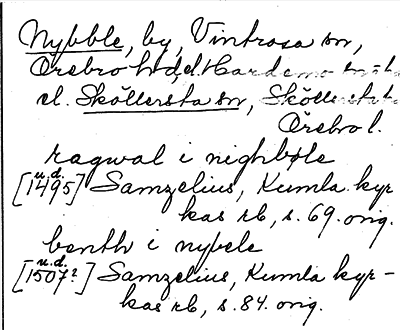 Nybble, by, Vintrosa sn,
Örebro hd, el. Hardemo sn
el. Sköllersta sn, Sköllersta
Örebro l.
ragwal i nighbøle
u.d.
[1495] Samzelius, Kumla kyr
kas rb, s. 69. orig.
benth i nybele
u.d.
[1507?] Samzelius, Kumla kyr-
kas rb, s. 84. orig.